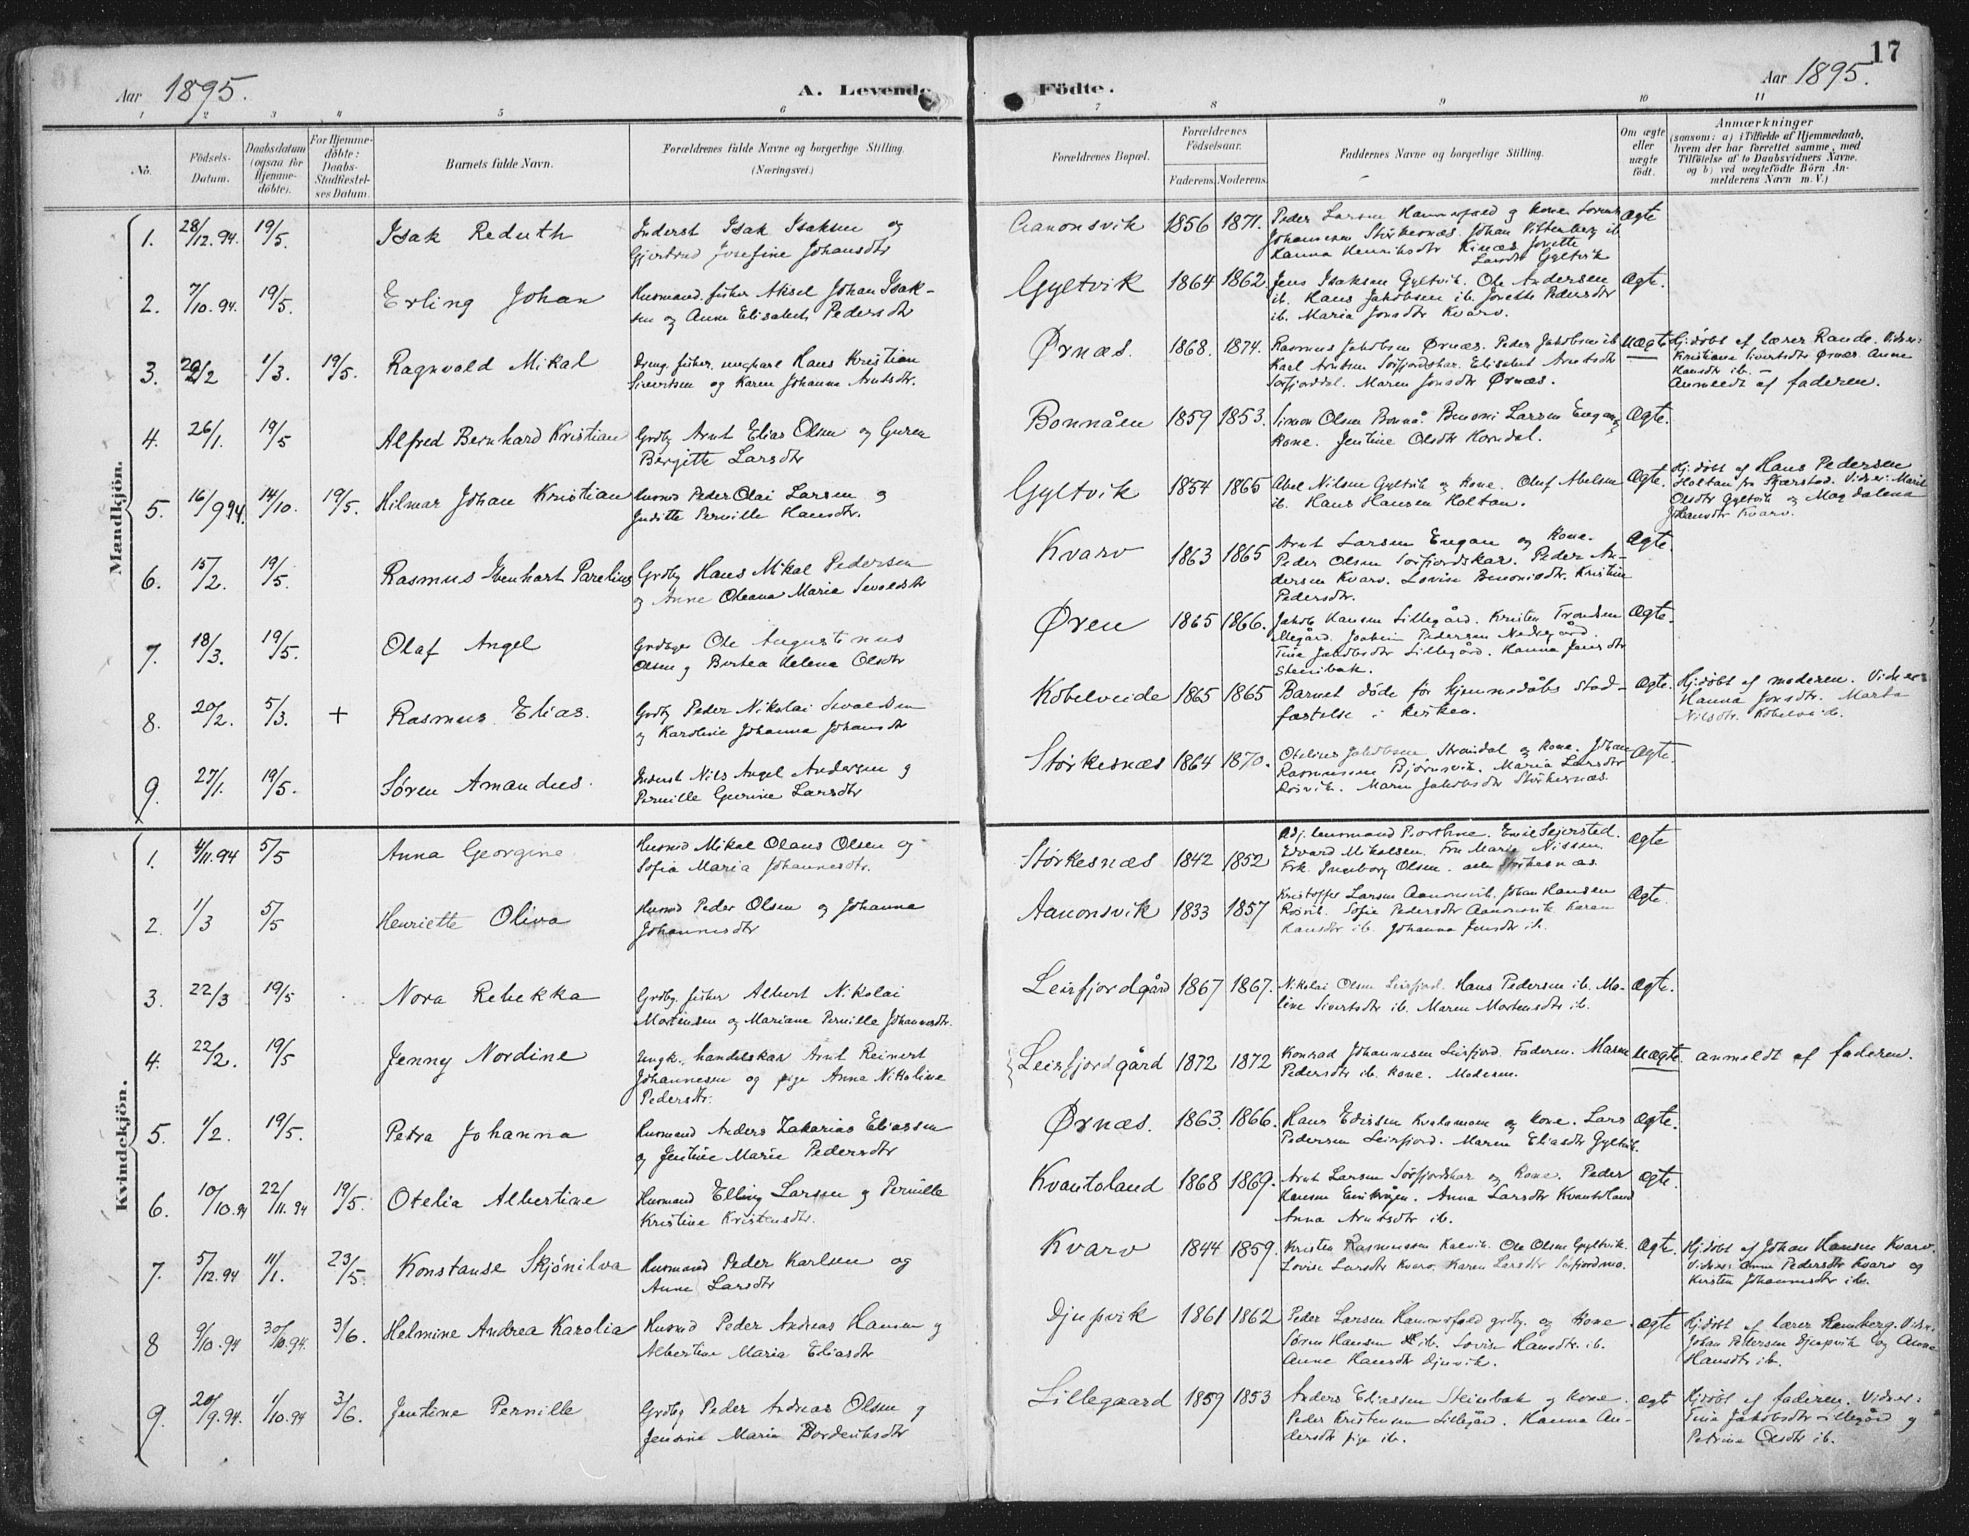 17
Aar 1895.
A. Levende Födte.
Aar 1895.
1 2 3 4 5 6 7 8 9 10 11
No.
Födsels-
Datum.
Daabsdatum
(ogsaa for
Hjemme-
döbte).
For Hjemme-
döbte:
Daabs-
Stadfæstel-
ses Datum.
Barnets fulde Navn.
Forældrenes fulde Navne og borgerlige Stilling.
(Næringsvei.)
Forældrenes Bopæl.
Forældrenes
Födselsaar.
Faderens. Moderens.
Faddernes Navne og borgerlige Stilling.
Om ægte
eller
uægte
födt.
Anmærkninger
(saasom: a) i Tilfælde af Hjemmedaab,
hvem der har forrettet samme, med
Tilföielse af to Daabsvidners Navne.
og b) ved uægtefödte Börn An-
melderens Navn m. V.)
Mandkjön.
1. 28/12.94. 19/5. Isak Reduth
Inderst Isak Isaksen og
Gjertrud Josefine Johansdtr
Aanonsvik 1856 1871.
Peder Larsen Hammerfald og kone
Johannesen Störkesnæs. Johan ib
Hanna Henriksdtr Kinæs Jonette
Larsdtr Gyltvik
Ægte
2. 7/10.94. 19/5. Erling Johan
Husmand. fisker Aksel Johan Isak-
sen og Anne Elisabeth Pedersdtr
Gyltvik 1864 1862
Jens Isaksen Gyltvik. Ole Andersen
ib. Hans Jakobsen ib. Jonette Pedersdtr
ib. Maria Jonsdtr Kvarv.
Ægte.
3. 20/2 1/3. 19/5. Ragnvald Mikal
fisker, ungkarl Hans Kristian
Sivertsen og Karen Johanna Arntsdtr.
Ørnæs. 1868. 1874.
Rasmus Jakobsen Ørnæs. Peder Jakobsen ib
Karl Arntsen Sörfjordskar. Elisabet Arntsdtr
Sörfjorddal. Maren Jonsdtr Ørnæs.
Uægte
Hj.döbt af lærer Rande. Vidner:
Kristiane Sivertsdtr Ørnæs. Anne
Hansdtr ib. –
Anmeldt af faderen.
4. 26/1. 19/5 Alfred Bernhard Kristian
Grdby Arnt Elias Olsen og Guren
Bergitte Larsdtr
Bonnåen 1859 1853.
Simon Olsen Bonnå. Benoni Larsen Engan og
kone. Jentine Olsdtr Horndal.
Ægte.
5. 16/9 94. 14/10. 19/5. Hilmar Johan Kristian
Husmd Peder Olai Larsen og
Juditte Pernille Hansdtr.
Gyltvik 1854 1865
Abel Nilsen Gyltvik og kone. Oluf Abelsen
ib. Hans Hansen Holtan.
Ægte.
Hj.döbt af Hans Pedersen
Holtan fra Skjærstad. Vidner: Marit
Olsdtr Gyltvik og Magdalena
Johansdtr Kvarv.
6. 15/2. 19/5. Rasmus Ebenhart Parelius
Grdby Hans Mikal Pedersen
og Anne Oleana Maria Sevaldsdtr
Kvarv 1863 1865
Arnt Larsen Engan og kone.
Peder Olsen Sörfjordskar. Peder An-
dersen Kvarv. Lovise Benonisdtr. Kristine
Pedersdtr.
Ægte.
7. 18/3. 19/5. Olaf Angel
Grdbyer Ole Augustinus
Olsen og Bertea Helena Olsdtr
Øren 1865 1866.
Jakob Hansen Lillegård. Kristen Trondsen
llegård. Joakim Pedersen Nedregård.
Tina Jakobsdtr Lillegård. Hanna Jensdtr
Stenibak.
Ægte.
8. 20/2. 5/3. + Rasmus Elias.
Grdby Peder Nikolai Sevaldsen
og Karoline Johanna Johansdtr
Kobelveide 1865 1865
Barnet döde för hjemmedåbs stad-
fæstelse i kirken.
Ægte.
Hj.döbt af moderen. Vidner:
Hanna Jonsdtr. Marta
Nilsdtr. Kobelveide.
9. 27/1. 19/5. Søren Amandus.
Inderst Nils Angel Andersen og
Pernille Gurine Larsdtr
Störkesnæs 1864 1870.
Otelius Jakobsen Strandal og kone. Johan
Rasmussen Bjørnsvik. Maria Larsdtr
Rösvik. Maren Jakobsdtr Störkesnæs.
Ægte.
Kvindekjön.
1. 4/11.94 5/5 Anna Georgine
Husmd Mikal Olaus Olsen og
Sofia Maria Johannesdtr.
Störkesnæs 1842 1852
Adj. lensmand. Emil Sejersted.
Edvard Mikalsen. Fru Marie Nissen
Frk. Ingeborg Olsen. alle Störkesnæs.
Ægte
2. 1/3 5/5 Henriette Oliva
Husmd Peder Olsen og Johanna
Johannesdtr
Aanonsvik 1833 1857
Kristoffer Larsen Aanonsvik. Johan Hansen
Rösvik. Sofie Pedersdtr Aanonsvik. Karen
Hansdtr ib. Johanna Jensdtr ib.
Ægte.
3. 22/3 19/5 Nora Rebekka
Grdby. fisker Albert Nikolai
Mortensen og Mariane Pernille Johannesdtr.
Leirfjordgård 1867 1867.
Nikolai Olsen Leirfjord. Hans Pedersen ib. Ma-
line Sivertsdtr ib. Maren Mortensdtr ib.
Ægte.
4. 22/2. 19/5 Jenny Nordine
Ungk. handelskar Arnt Reinert
Johannesen og pige Anna Nikoline
Pedersdtr.
Leirfjordgård 1872 1872
Konrad Johannesen Leirfjord. Faderen. Maren
Pedersdtr ib. kone. Moderen.
Uægte.
anmeldt af faderen.
5. 1/2. 19/5. Petra Johanna
Husmand Anders Zakarias Eliassen
og Jentine Marie Pedersdtr
Ørnæs. 1863. 1866.
Hans Edissen Kvolmoen og kone. Lars
Pedersen Leirfjord. Maren Eliasdtr Gyltvik.
Ægte.
6. 10/10.94 22/11.94 19/5. Otelia Albertine
Husmand Elling Larsen og Pernille
Kristine Kristensdtr.
Kvantoland 1868 1869.
Arnt Larsen Sörfjordskar og kone. Peder
Hansen. Anna Larsdtr Kvantoland
Anna Arntsdtr ib.
Ægte.
7. 5/12.94 11/1. 23/5. Konstanse Skjönilva
Husmand Peder Karlsen og
Anne Larsdtr
Kvarv 1844 1859.
Kristen Rasmussen Kalvik. Ole Olsen Gyltvik.
Lovise Larsdtr Kvarv. Karen Larsdtr Sörfjordmo.
Ægte.
Hj.döbt af Johan Hansen Kvarv.
Vidner: Anne Pedersdtr Kvarv og
Kirsten Johannesdtr ib.
8 9/10.94 30/10.94. 3/6. Helmine Andrea Karolia
Husmd Peder Andreas Hansen og
Albertine Maria Eliasdtr
Djupvik 1861 1862
Peder Larsen Hammerfald grdby. og kone.
Søren Hansen ib. Lovise Hansdtr. ib.
Anne Hansdtr Djupvik.
Ægte
Hj.döbt af lærer Ramberg. Vidn:
Johan Pettersen Djupvik og Anne
Hansdtr ib.
9. 20/9.94. 1/10.94 3/6. Jentine Pernille
Grdby Peder Andreas Olsen og
Jensine Maria Bordeviksdtr
Lillegaard 1859 1853
Anders Eliassen Steinbak og kone.
Peder Kristensen Lillegård. Hanna An-
dersdtr pige ib.
Ægte
Hj.döbt af faderen. Vidner:
Tina Jakobsdtr Lillegård og
Petrina Olsdtr ib.